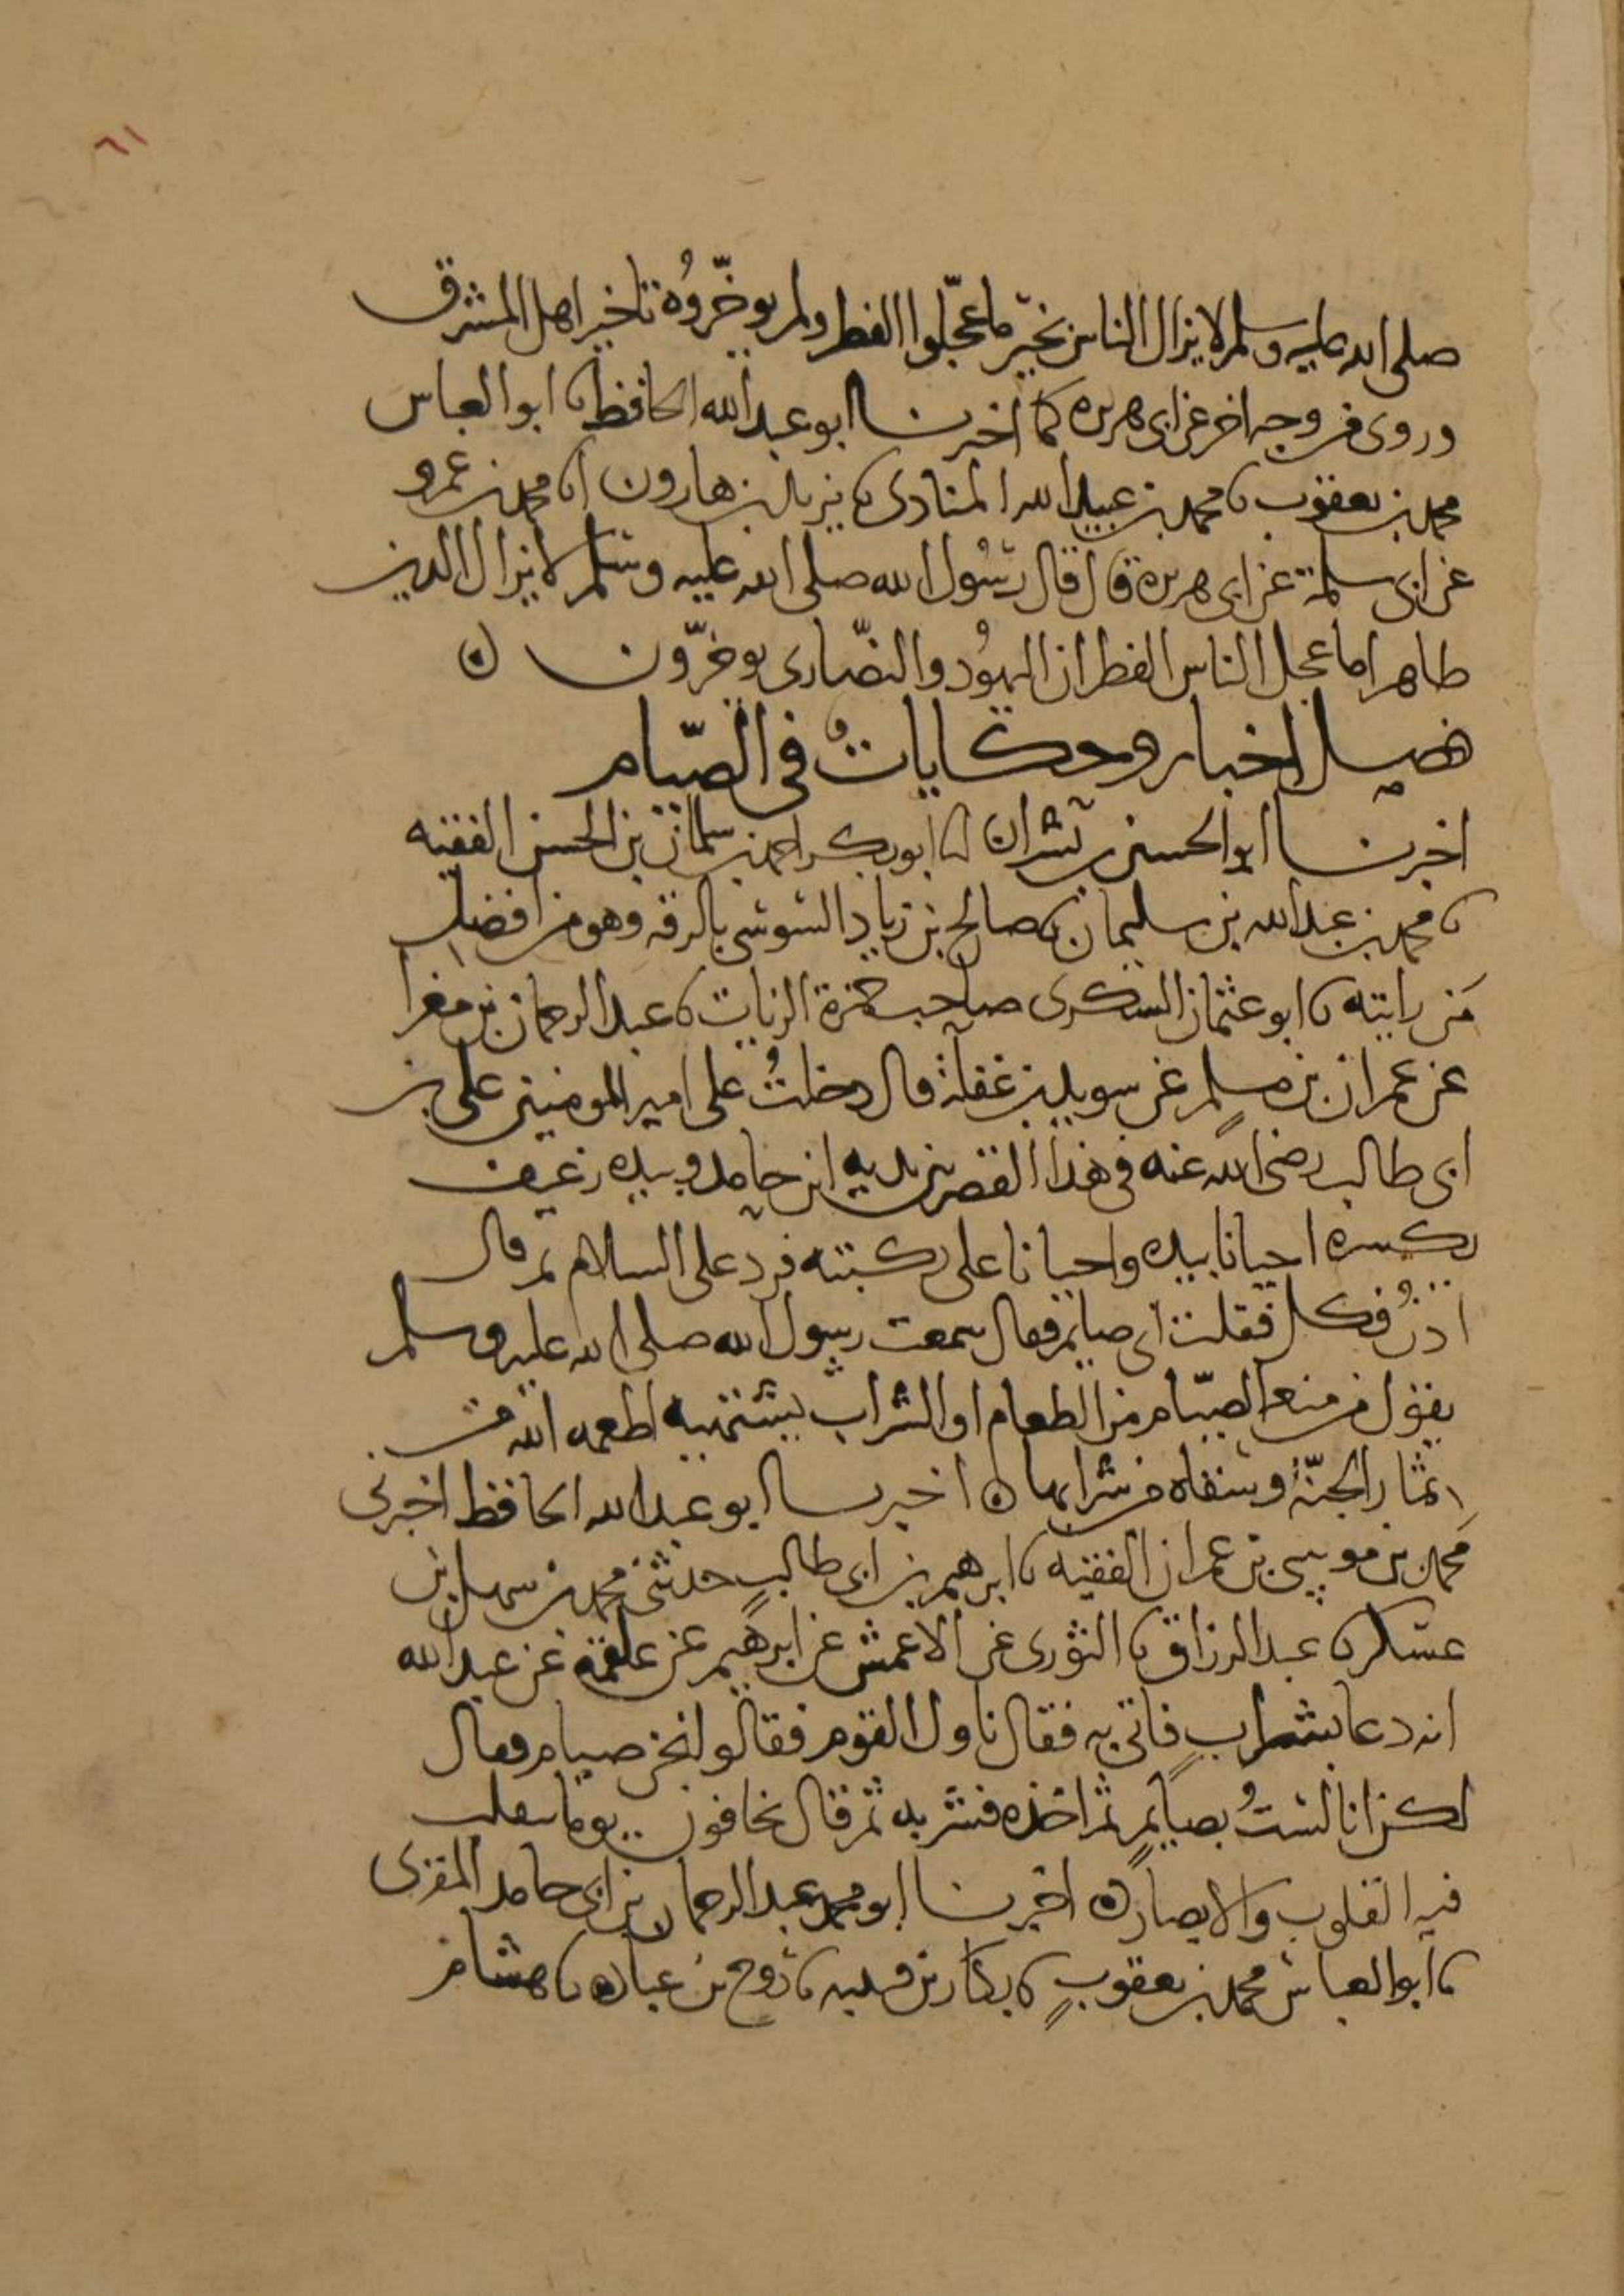 ٦١
صلى الله عليه وسلم لا يزال الناس بخير ما عجّلوا الفطر ولم يوخّروُه تاخير اهل المشرق
وروى من وجه اخر عن ابى هريره كما اخبرنا ابو عبد الله الحافظ نا ابو العباس
محمد بن يعقوب نا محمد بن عبيد الله المنادى نا يزيد بن هارون انا محمد بن عمرو
عن ابى سلمة عن ابى هريرة قال قال رسُول الله صلى الله عليه وسلم لا يزال الدين
ظاهرا ما عجل الناس الفطر ان اليهوُد والنصّارى يوخرّون ه
فصل اخبار وحكاياتٌ فى الصّيام
اخبرنا ابو الحسين بن بشران انا ابو بكر احمد بن سلمان بن الحسن الفقيه
نا محمد بن عبد الله بن سليمان نا صالح بن زياد السوسى بالرقه وهو من افضل
مَن رايته نا ابو عثمان السكرى صاحب حمزة الزيات نا عبد الرحمان بن مغرا
عن عمران بن مسلم عن سويد بن غفلة قال دخلتُ على امير المومنين على بن
ابى طالب رضى الله عنه فى هذا القصر بين يديه لبن حامد وبيده رغيف
يكسره احيانا بيده واحيانا على ركبته فرد على السلام ثم قال
ادنُ فكل فقلت انى صايم فقال سمعت رسول الله صلى الله عليه وسلم
يقول من منعه الصيّام من الطعام او الشراب يشتهيه اطعمه الله من
ثمار الجنّة وسقاه من شرابها ه اخبرنا ابو عبد الله الحافظ اخبرنى
محمد بن موسى بن عمران الفقيه نا ابرهيم بن ابى طالبٍ حدثنى محمد بن سهل بن
عسكر نا عبد الرزاق نا الثورى عن الاعمش عن ابرهيم عن علقمة عن عبد الله
انه دعا بشرابٍ فاتى به فقال ناول القوم فقالو نحن صيام فقال
لكن انا لستُ بصايمٍ ثم اخذه فشربه ثم قال يخافون يوما تتقلب
فيه القلوب والابصار ه اخبرنا ابو محمد عبد الرحمان بن ابى حامد المقرى
نا ابو العباس محمد بن يعقوبٍ نا بكار بن قتيبه نا روح بن عباده نا هشام